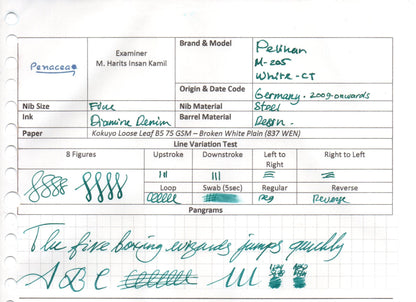 Penaceae
Examiner
M. Harits Insan Kamil
Brand & Model
Pelikan
M-205
White - CT
Origin & Date Code
Germany. 2009-onwards
Nib Size
Fine
Nib Material
Steel
Ink
Diamine Denim
Barrel Material
Resin.
Paper
Kokuyo Loose Leaf B5 75 GSM – Broken White Plain (837 WEN)
Line Variation Test
8 Figures
Upstroke
Downstroke
Left to Right
Right to Left
Loop
Swab (5sec)
Regular
Reverse
reg
Reverse
Pangrams
The five boxing wizards jumps quickly
A B C